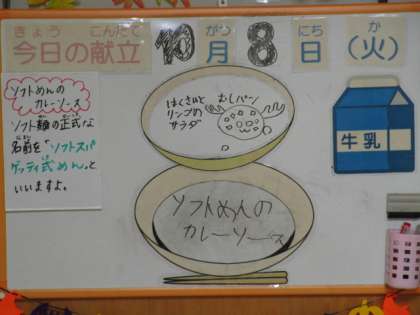 きょう こんだて がつ にち か
今日の献立 10月8日(火)
ソフトめんの
カレーソース
ソフト麺の正式な
名前を「ソフトスパ
ゲッティ式めん」と
いいますよ。
はくさいと
リンゴの
サラダ
むしパン
牛乳
ソフトめんの
カレーソース